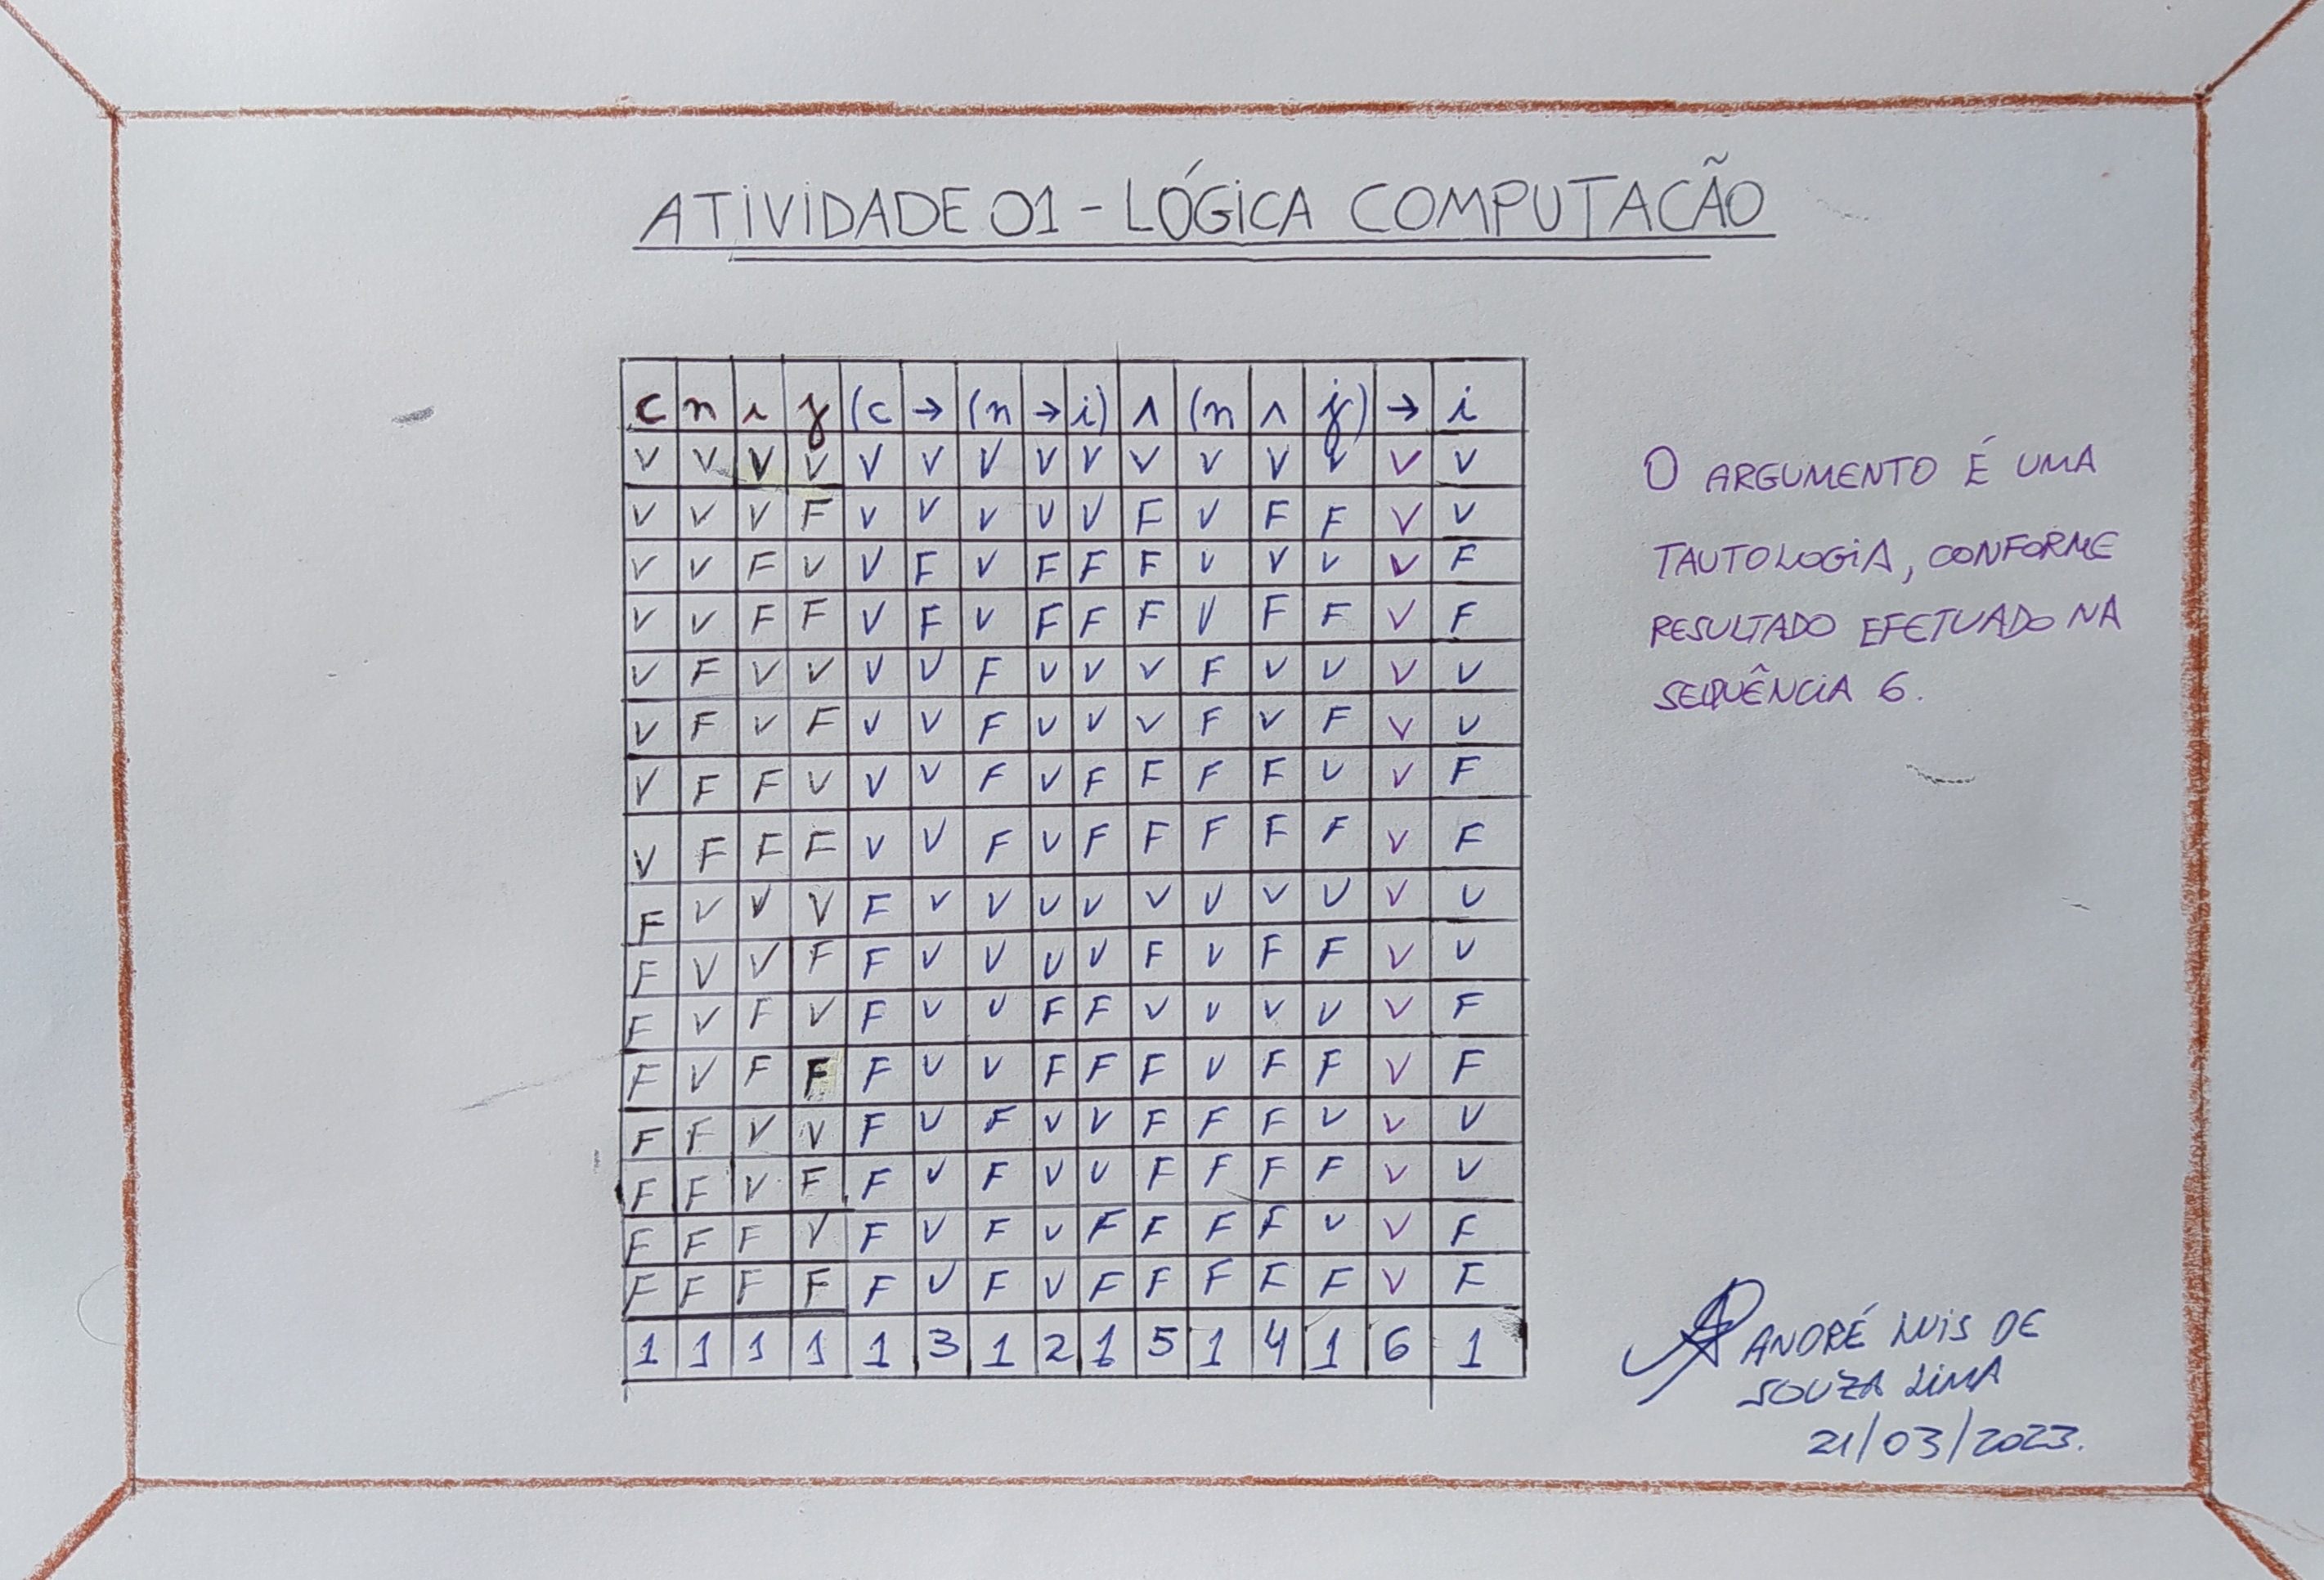 ATIVIDADE 01 - LÓGICA COMPUTACÃO
c n i j (c → (n → i) ∧ (n ∧ j) → i
V V V V V V V V V V V V V V V
V V V F V V V V V F V F F V V
V V F V V F V F F F V V V V F
V V F F V F V F F F V F F V F
V F V V V V F V V V F V V V V
V F V F V V F V V V F V F V V
V F F V V V F V F F F F V V F
V F F F V V F V F F F F F V F
F V V V F V V V V V V V V V V
F V V F F V V V V F V F F V V
F V F V F V V F F V V V V V F
F V F F F V V F F F V F F V F
F F V V F V F V V F F F V V V
F F V F F V F V V F F F F V V
F F F V F V F V F F F F V V F
F F F F F V F V F F F F F V F
1 1 1 1 1 3 1 2 1 5 1 4 1 6 1
O ARGUMENTO É UMA
TAUTOLOGIA, CONFORME
RESULTADO EFETUADO NA
SEQUÊNCIA 6.
ANDRÉ LUIS DE
SOUZA LIMA
21/03/2023.